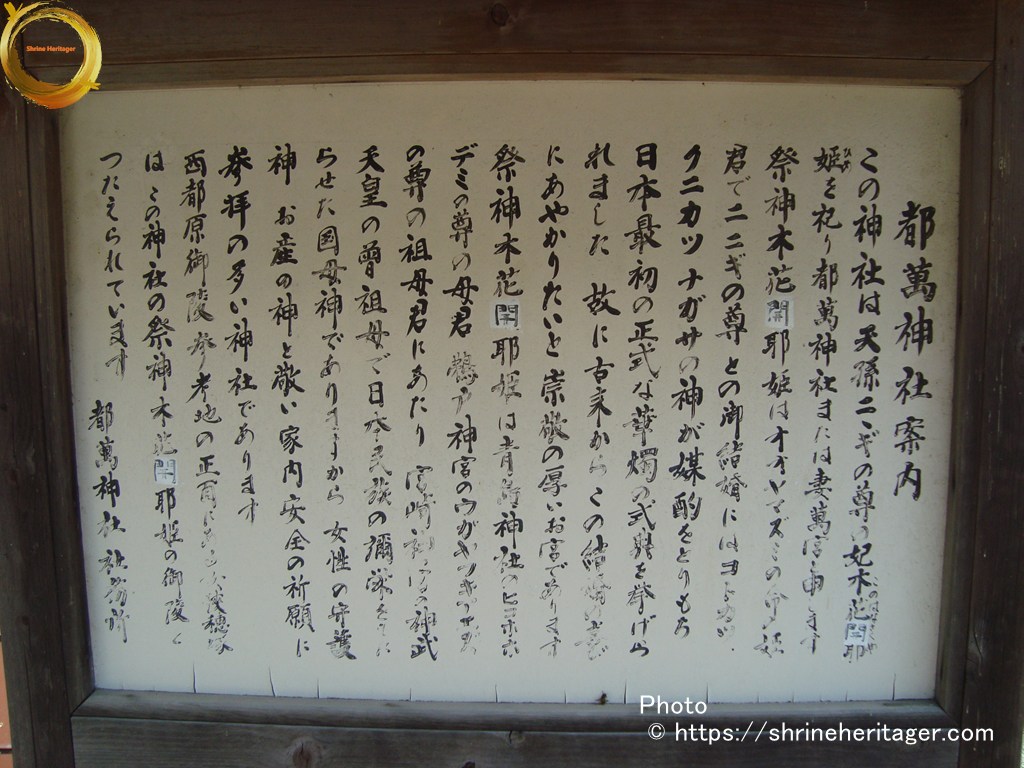 都萬神社案内
この神社は天孫ニニギの尊の妃木花開耶
姫を祀り都萬神社または妻萬宮と申します
ひめ
祭神木花開耶姫はオオヤマズミの命の姫
君でニニギの尊との御結婚にはヨトカツ
クニカツナガサの神が媒酌をとりもち
日本最初の正式な華燭の式典を挙げら
れました 故に古来からこの結婚の喜び
にあやかりたいと崇敬の厚いお宮であります
祭神木花開耶姫は青島神社のヒコホホ
デミの尊の母君 鵜戸神宮のウガヤフキアエズ
の尊の祖母君にあたり 宮崎神宮の神武
天皇の曽祖母で日本民族の彌栄を
らせた国母神でありますから 女性の守護
神 お産の神と敬い家内安全の祈願に
参拝の多い神社であります
西都原御陵参考地の正面にある
はこの神社の祭神木花開耶姫の御陵と
つたえられています
都萬神社 社務所
Shrine Heritager
Photo
© https://shrineheritager.com